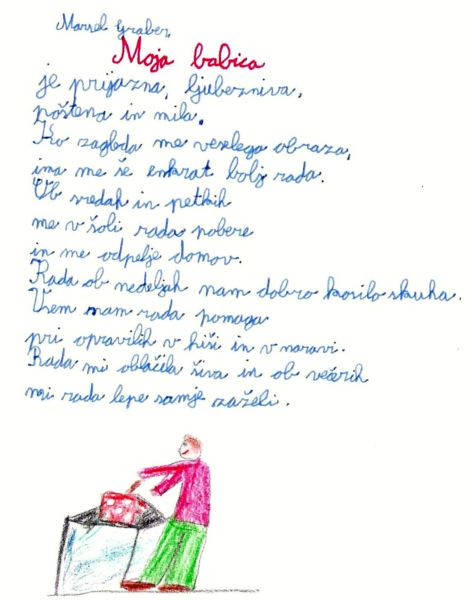 Marsel Graber,
Moja babica
je prijazna, ljubezniva,
poštena in mila.
Ko zagleda me veselega obraza,
ima me še enkrat bolj rada.
Ob sredah in petkih
me v šoli rada pobere
in me odpelje domov.
Rada ob nedeljah nam dobro kosilo skuha.
Vsem nam rada pomaga
pri opravilih v hiši in v naravi.
Rada mi oblačila šiva in ob večerih
mi rada lepe sanje zaželi.